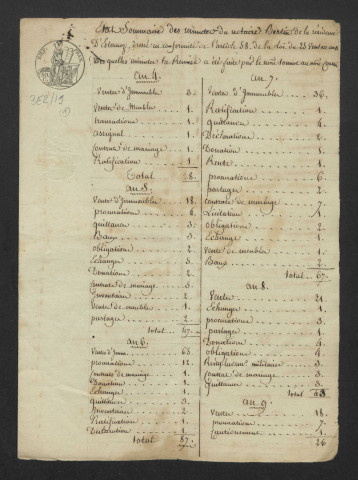 Etat Sommaire des minutes du notaire Bertin de la résidence
D'Estaing, dressé en conformité de l'article 58. de la loi du 25 Ventose an
des quelles minutes la Remise a été faite par le
3E2/19
an 4.
Ventes d'Immeubles 3.
Vente de Meubles 1.
transactions 1.
assignat 1.
Contrat de mariage 1.
Ratification 1
Total 8.
an 5.
Vente d'Immeubles 18.
procurations 6.
quittances 5.
Baux 3.
obligations 2.
Echanges 5.
Donations 2.
Contrats de mariage 3.
Inventaires 2.
Vente de meubles 1.
partages 2.
total
an 6.
Vente d'Imm. 63
procurations 12.
Contrats de mariage 1.
Donation 1.
Echange 1.
quittances 3.
Inventaire 2.
Ratification 1.
Déclaration 1.
total 87.
an 7.
Vente d'Immeubles 36.
Ratification 1.
quittances 4.
Déclarations 2.
Donation 1.
Rente 1.
procurations 6.
partages 2.
contrats de mariage 7.
Licitation 1.
obligations 2.
Echange 1.
vente de meubles 1.
Baux 2.
total 67.
an 8.
Vente 21.
Echange 1.
procurations 3.
partages 1.
Donations 4.
obligations 4.
militaires 3.
Contrat de mariage 3.
Quittances 3.
total 43
an 9.
Vente 18.
procurations 7.
Cautionnement 1.
26